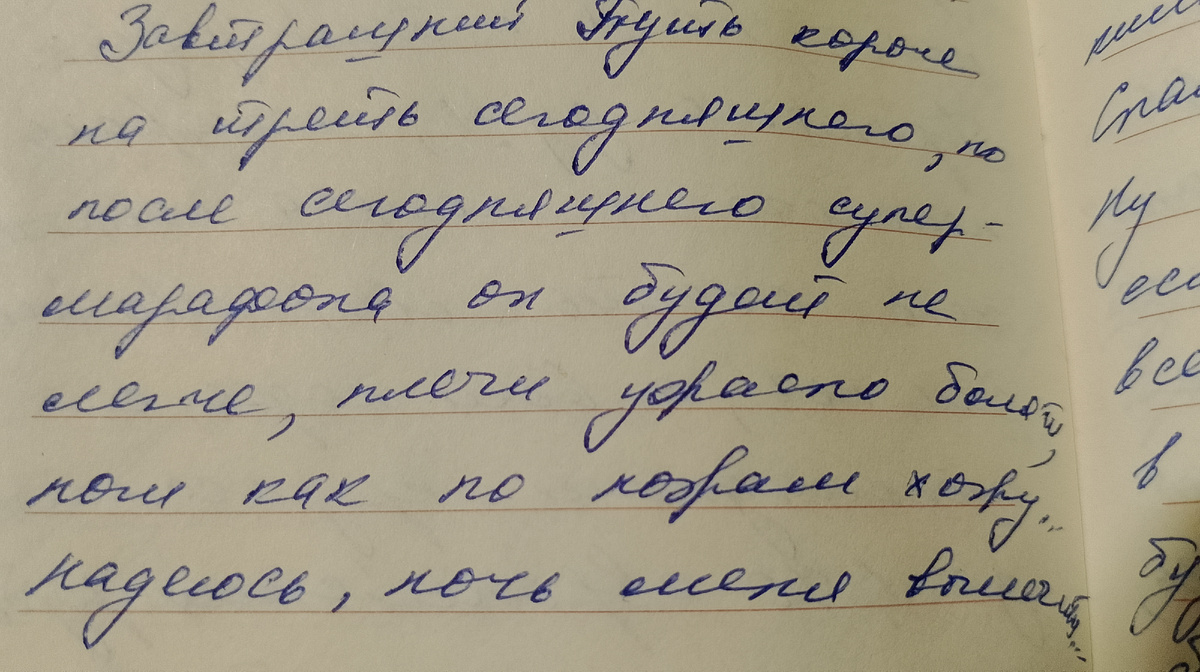 Завтрашний Путь короче
на треть сегодняшнего, но
после сегодняшнего супер-
марафона он будет не
легче, плечи ужасно болят,
ноги как по ножам хожу...
надеюсь, ночь меня вылечит...
Ну
в